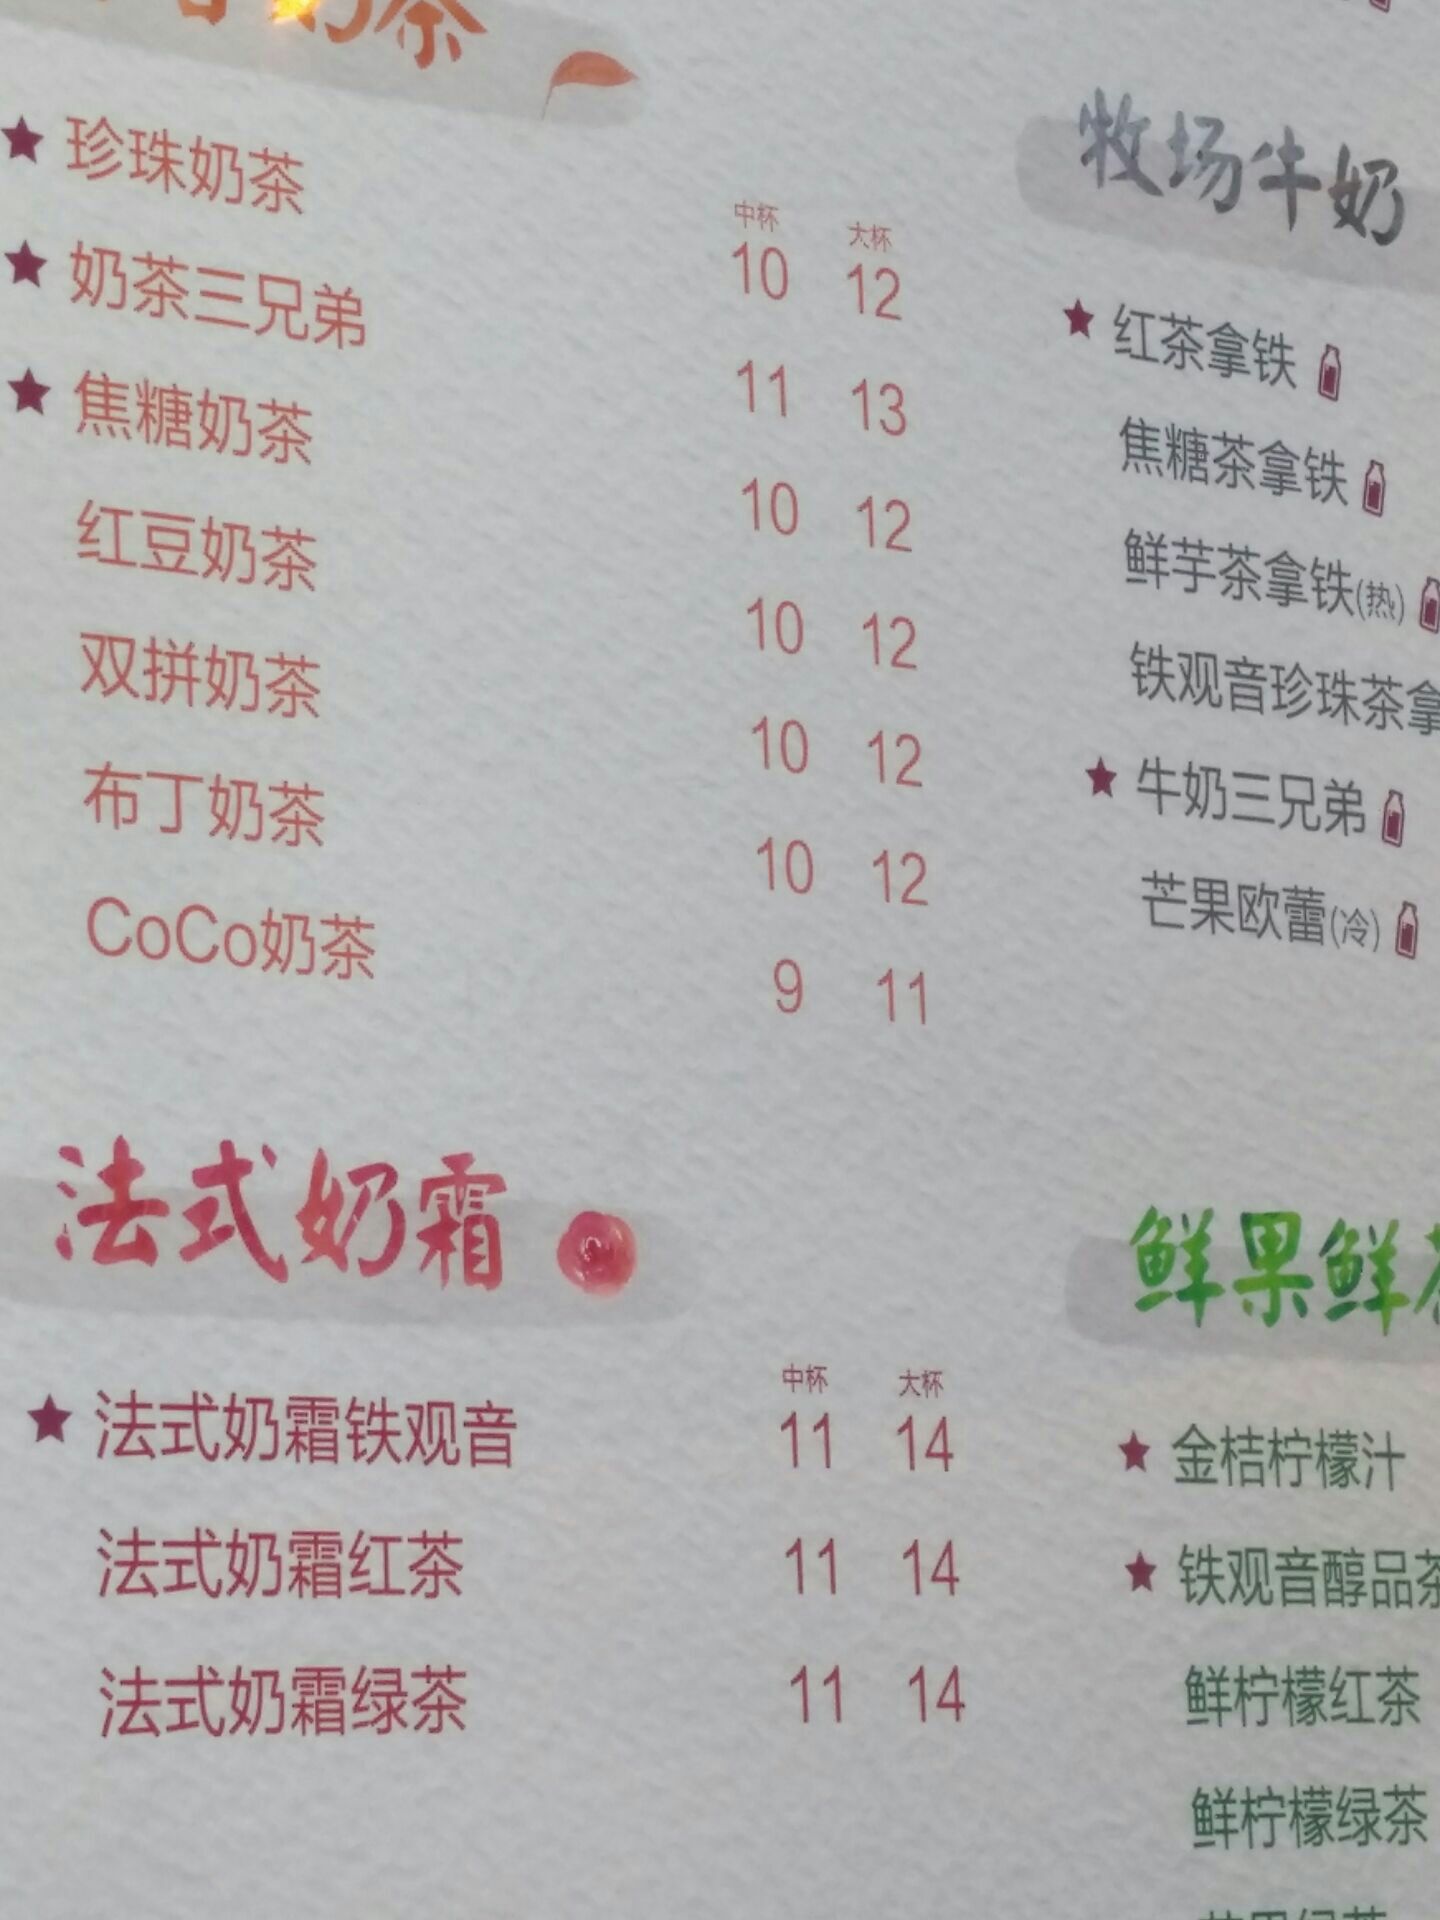 奶茶
中杯 大杯
★ 珍珠奶茶 10 12
★ 奶茶三兄弟 11 13
★ 焦糖奶茶 10 12
红豆奶茶 10 12
双拼奶茶 10 12
布丁奶茶 10 12
CoCo奶茶 9 11
法式奶霜
中杯 大杯
★ 法式奶霜铁观音 11 14
法式奶霜红茶 11 14
法式奶霜绿茶 11 14
牧场牛奶
★ 红茶拿铁
焦糖茶拿铁
鲜芋茶拿铁(热)
铁观音珍珠茶拿
★ 牛奶三兄弟
芒果欧蕾(冷)
鲜果鲜茶
★ 金桔柠檬汁
★ 铁观音醇品茶
鲜柠檬红茶
鲜柠檬绿茶